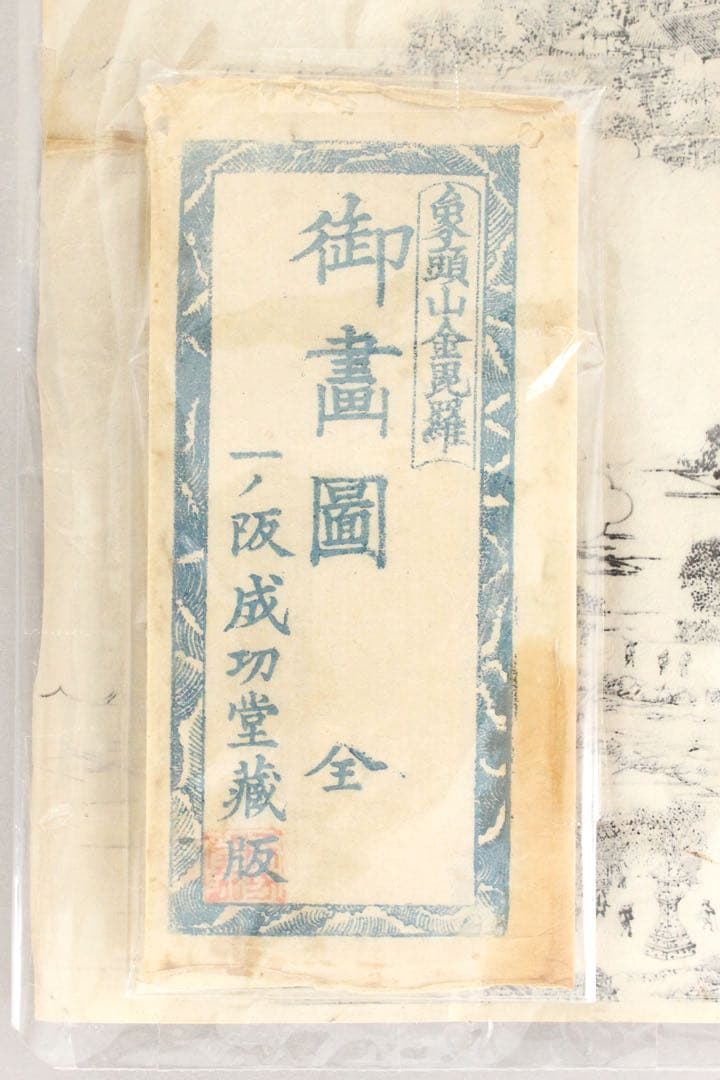 象頭山金毘羅
御畫圖 全
一ノ阪成功堂藏版